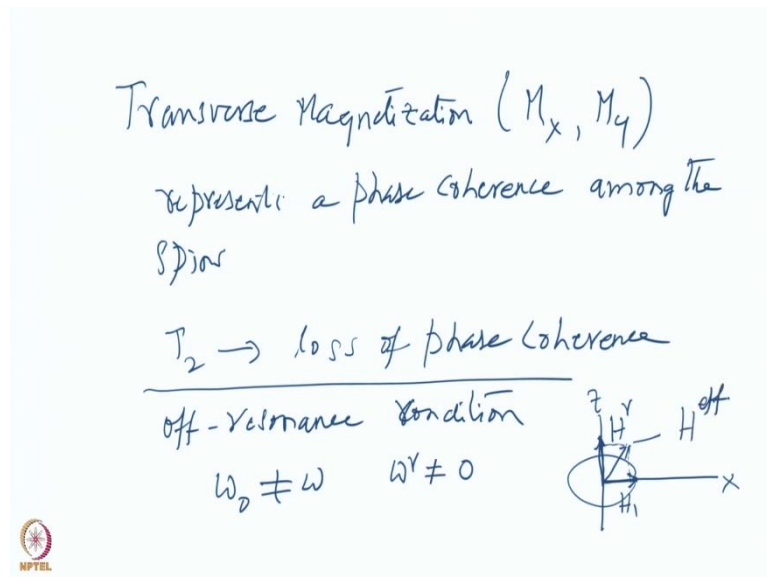 Transverse Magnetization (Mx, My)
represents a phase coherence among the
spins
T2 → loss of phase coherence
off-resonance condition
ω0 ≠ ω ωʳ ≠ 0
z
Hʳ
H^eff
x
H1
NPTEL